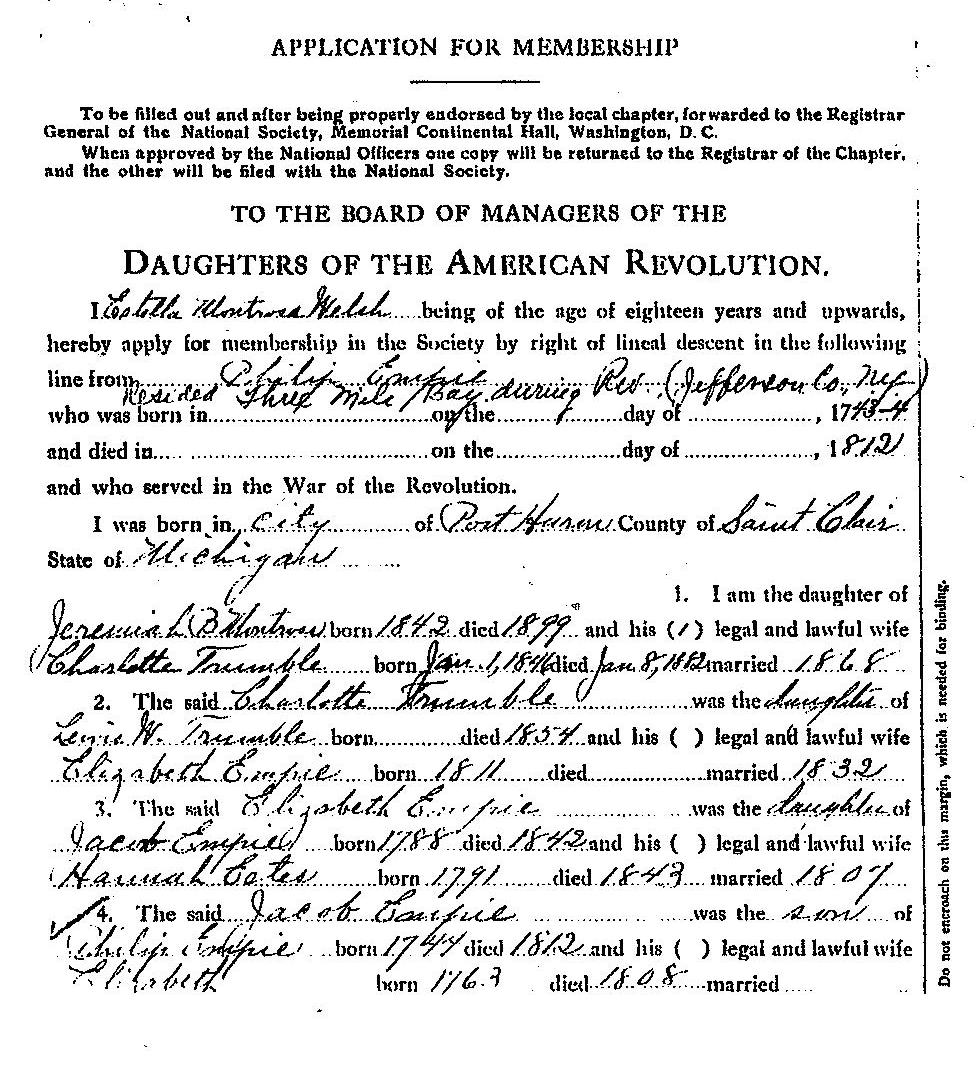 APPLICATION FOR MEMBERSHIP
To be filled out and after being properly endorsed by the local chapter, forwarded to the Registrar
General of the National Society, Memorial Continental Hall, Washington, D. C.
When approved by the National Officers one copy will be returned to the Registrar of the Chapter,
and the other will be filed with the National Society.
TO THE BOARD OF MANAGERS OF THE
DAUGHTERS OF THE AMERICAN REVOLUTION.
I Estella Montross Welsh being of the age of eighteen years and upwards,
hereby apply for membership in the Society by right of lineal descent in the following
line from Philip Empie
Resided Three Mile Bay during Rev. (Jefferson Co, Ny)
who was born in on the day of , 1743-4
and died in on the day of , 1812
and who served in the War of the Revolution.
I was born in city of Port Huron County of Saint Clair
State of Michigan
1. I am the daughter of
Jeremiah B Montross born 1842 died 1899 and his (1) legal and lawful wife
Charlotte Trumble born Jan. 1, 1846 died Jan 8, 1882 married 1868
2. The said Charlotte Trumble was the daughter of
Lewis W. Trumble born died 1854 and his ( ) legal and lawful wife
Elizabeth Empie born 1811 died married 1832
3. The said Elizabeth Empie was the daughter of
Jacob Empie born 1788 died 1842 and his ( ) legal and lawful wife
Hannah born 1791 died 1843 married 1807
4. The said Jacob Empie was the son of
Philip Empie born 1744 died 1812 and his ( ) legal and lawful wife
Elizabeth born 1763 died 1808 married
Do not encroach on this margin, which is needed for binding.